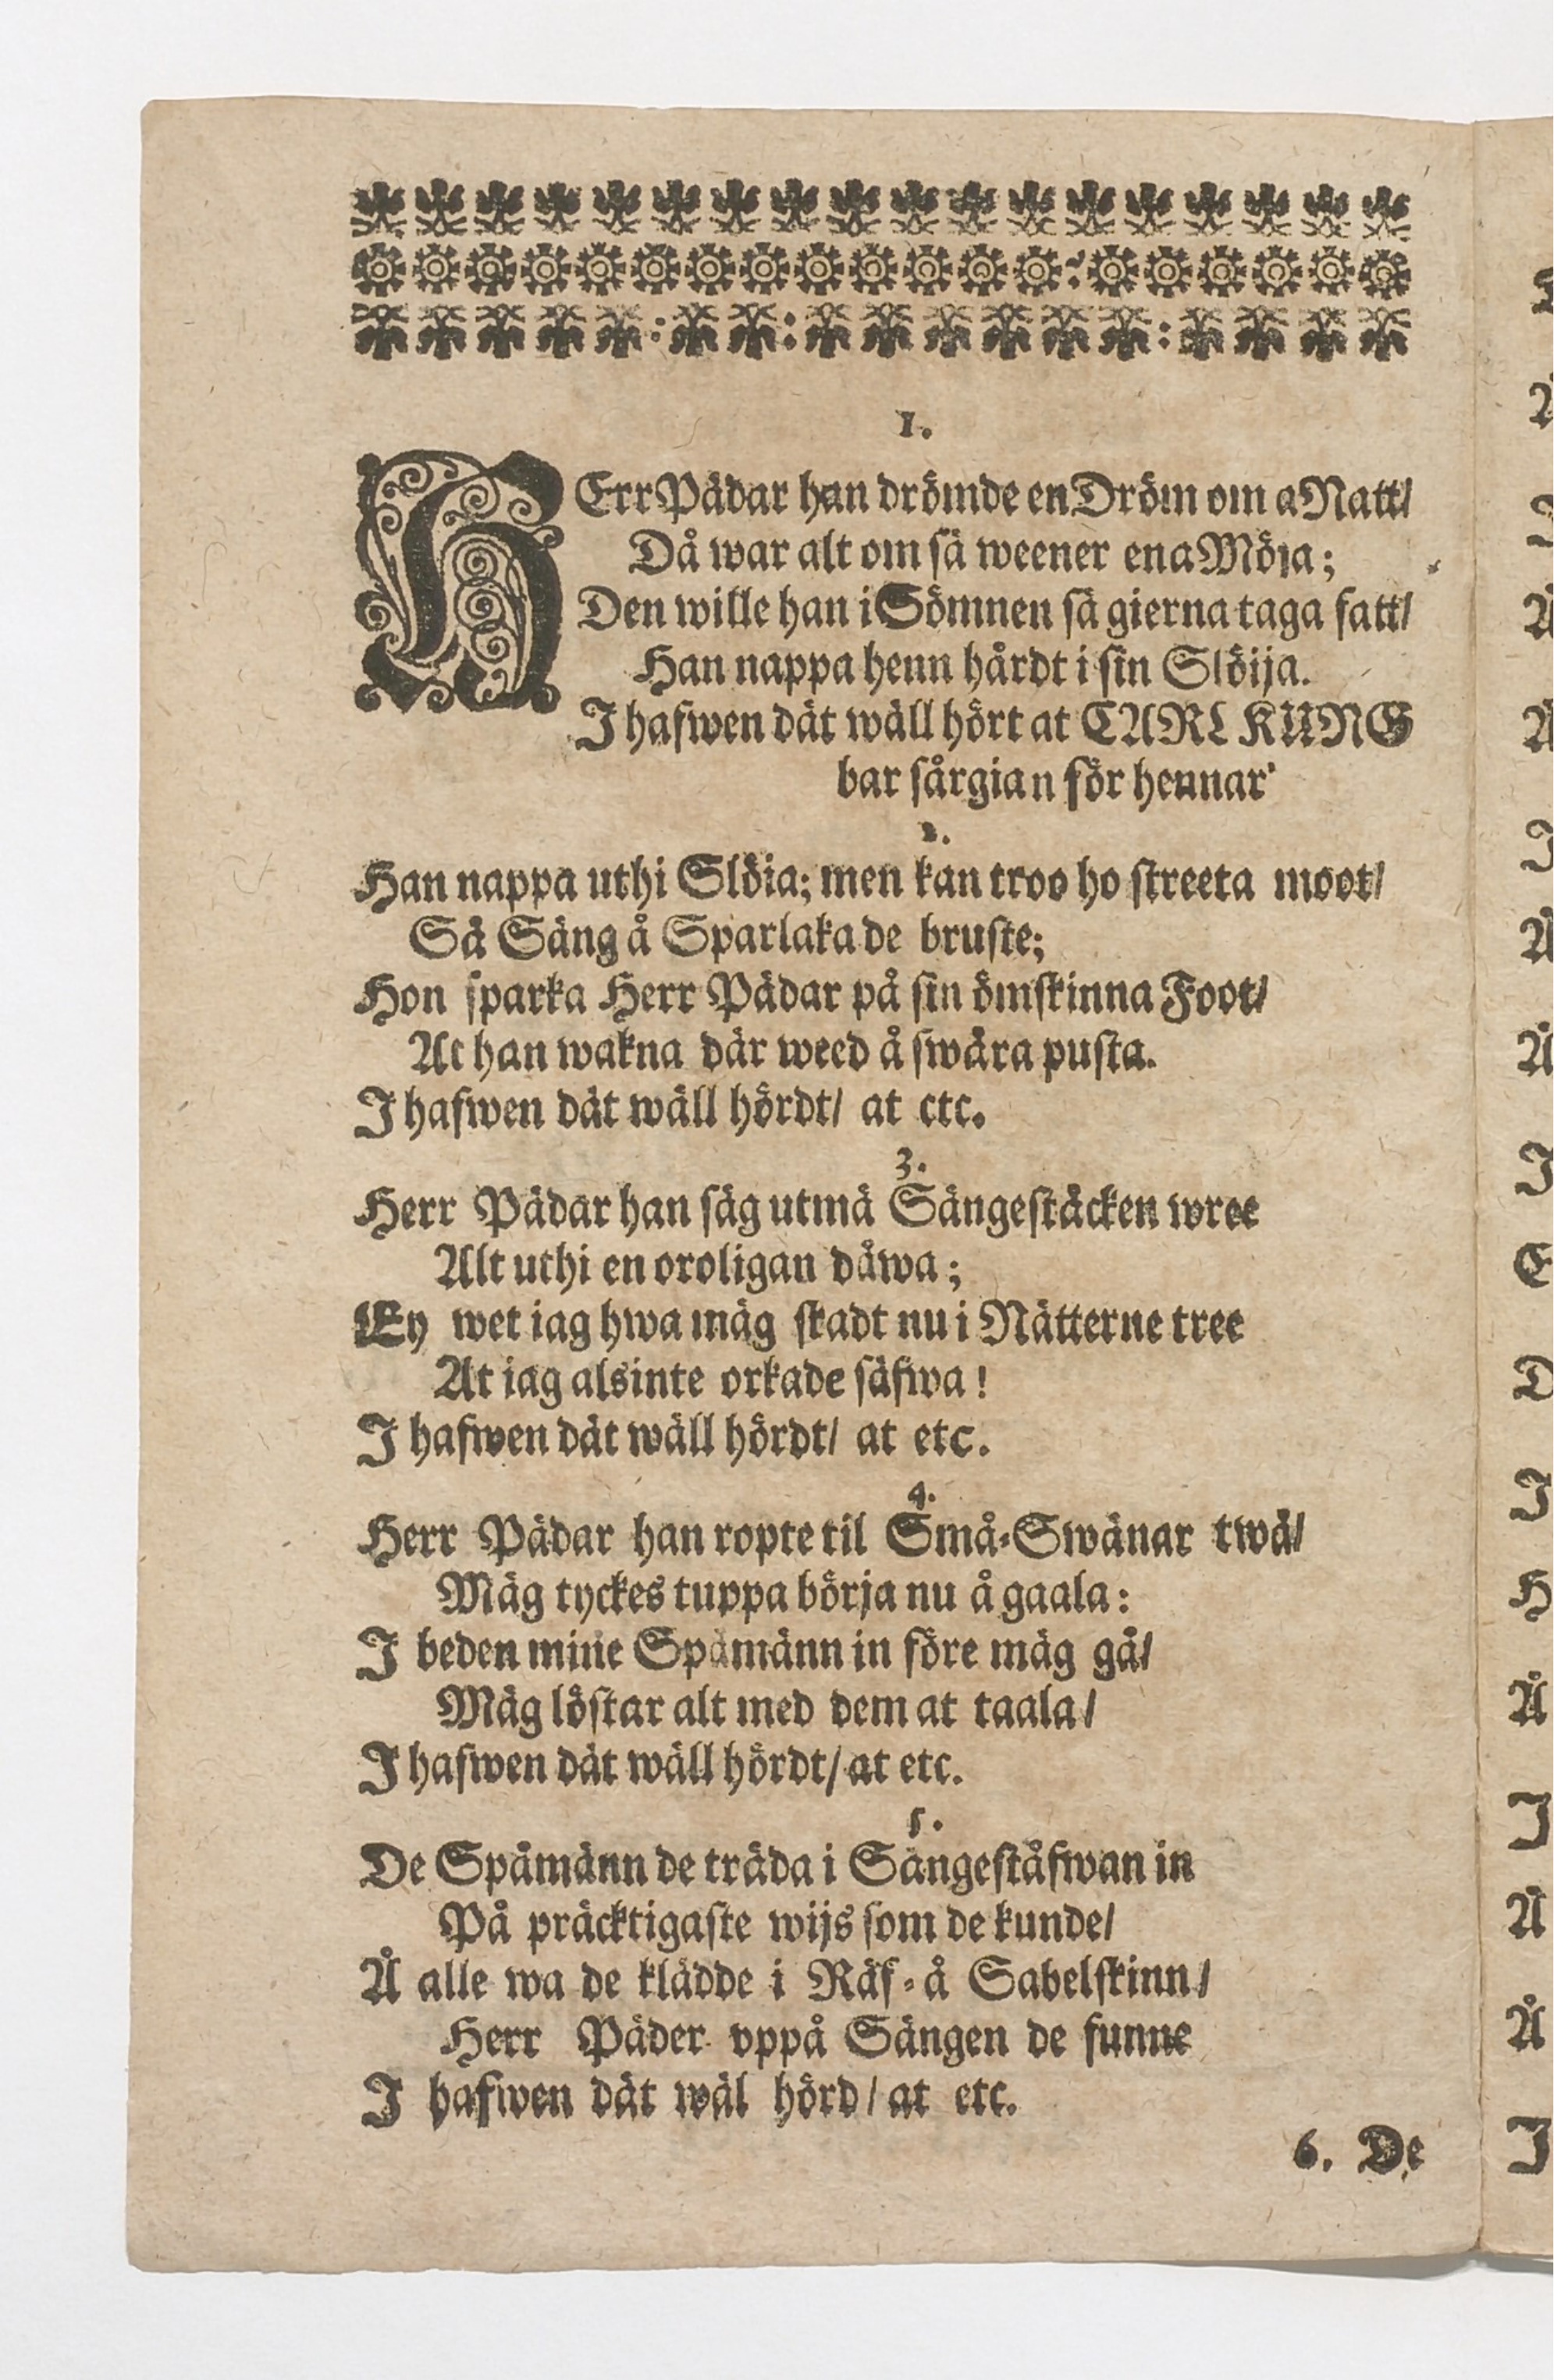 1.
HErr Pädar han drömde en Dröm om a Natt/
Då war alt om sä weener ena Möja;
Den wille han i Sömnen sä gierna taga fatt/
Han nappa henn hårdt i sin Slöija.
I hafwen dät wäll hört at CARL KUNG
bar sårgian för hennar
2.
Han nappa uthi Slöia; men kan troo ho streeta moot/
Sä Säng å Sparlaka de bruste;
Hon sparka Herr Pädar på sin ömskinna Foot/
At han wakna där weed å swära pusta.
I hafwen dät wäll hördt/ at etc.
3.
Herr Pädar han säg ut mä Sängestäcken wree
Alt uthi en oroligan dåwa;
Ey wet iag hwa mäg skadt nu i Nätterne tree
At iag alsinte orkade säfwa!
I hafwen dät wäll hördt/ at etc.
4.
Herr Pädar han ropte til Små-Swänar twä/
Mäg tyckes tuppa börja nu å gaala:
I beden mine Spämänn in före mäg gå/
Mäg löstar alt med dem at taala/
I hafwen dät wäll hördt/ at etc.
5.
De Spämänn de träda i Sängeståfwan in
På präcktigaste wijs som de kunde/
Å alle wa de klädde i Räf-å Sabelskinn/
Herr Päder vppå Sängen de funne
I hafwen dät wäl hörd/ at etc.
6. De